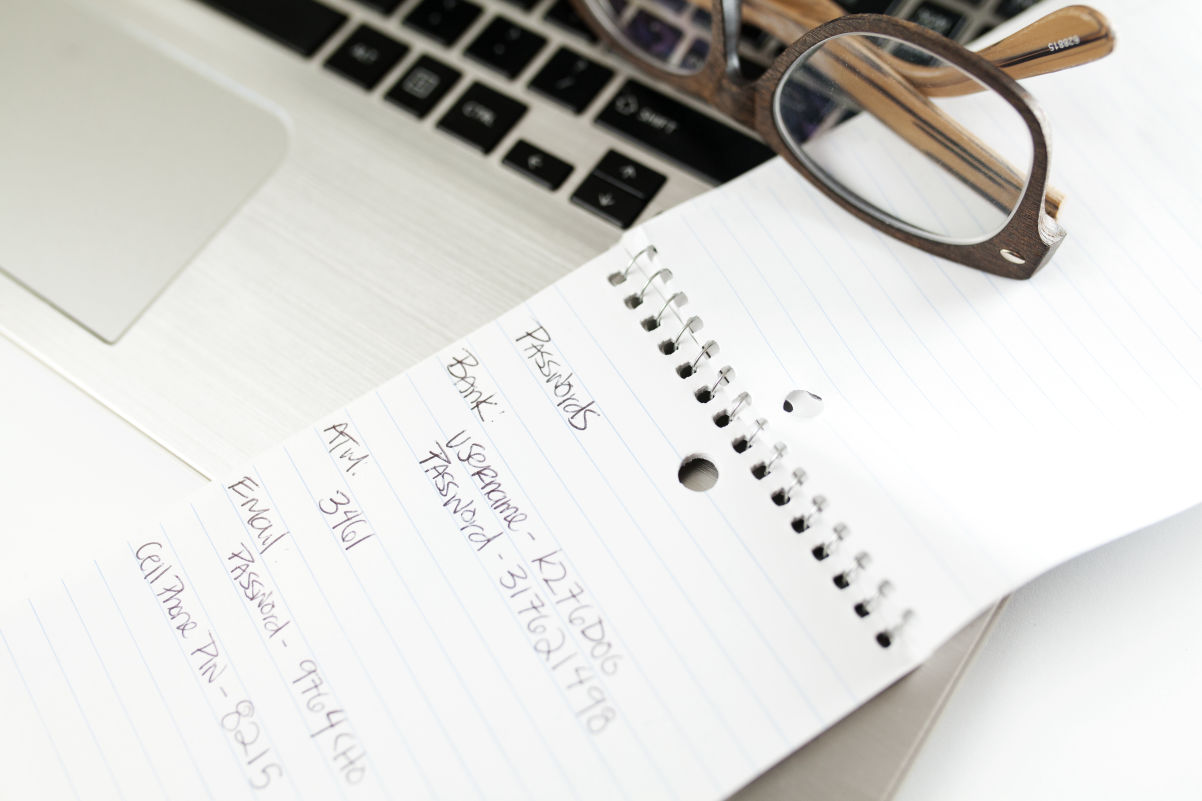 Passwords
Bank:
Username - K276DOG
Password - 317621498
ATM:
3461
Email:
Password - 9764CHO
Cell Phone PIN - 8215
ALT
CTRL
SHIFT
628815